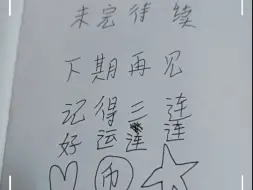 未完待续
下期再见
记得三连
好运连连
币